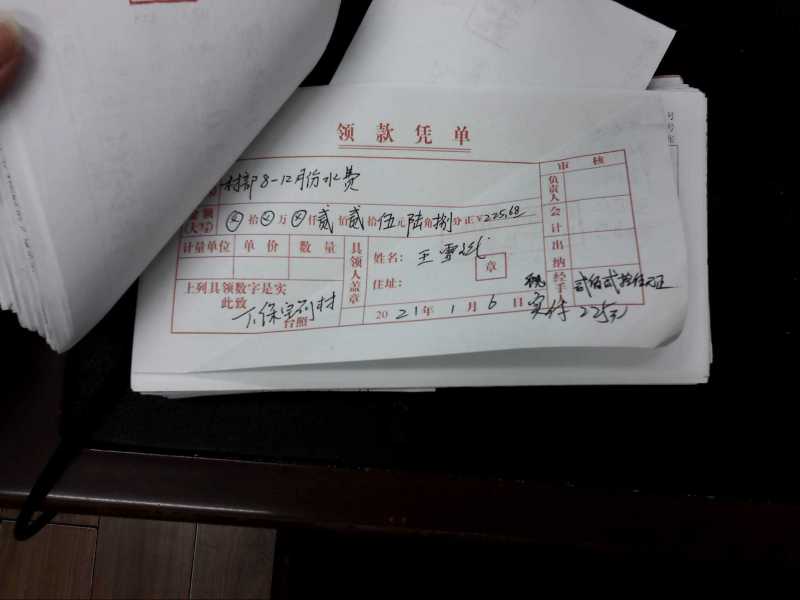 领款凭单
村部8-12月份水费
金额(大写) ⊗拾⊗万⊗仟贰佰贰拾伍元陆角捌分正￥225.68
审核
负责人
会计
出纳
经手
计量单位 单价 数量
具领人盖章
姓名: 王雪
章
住址:
上列具领数字是实
此致
下保宝列村
台照
2021年1月6日
贰佰贰拾伍元正
实付225元